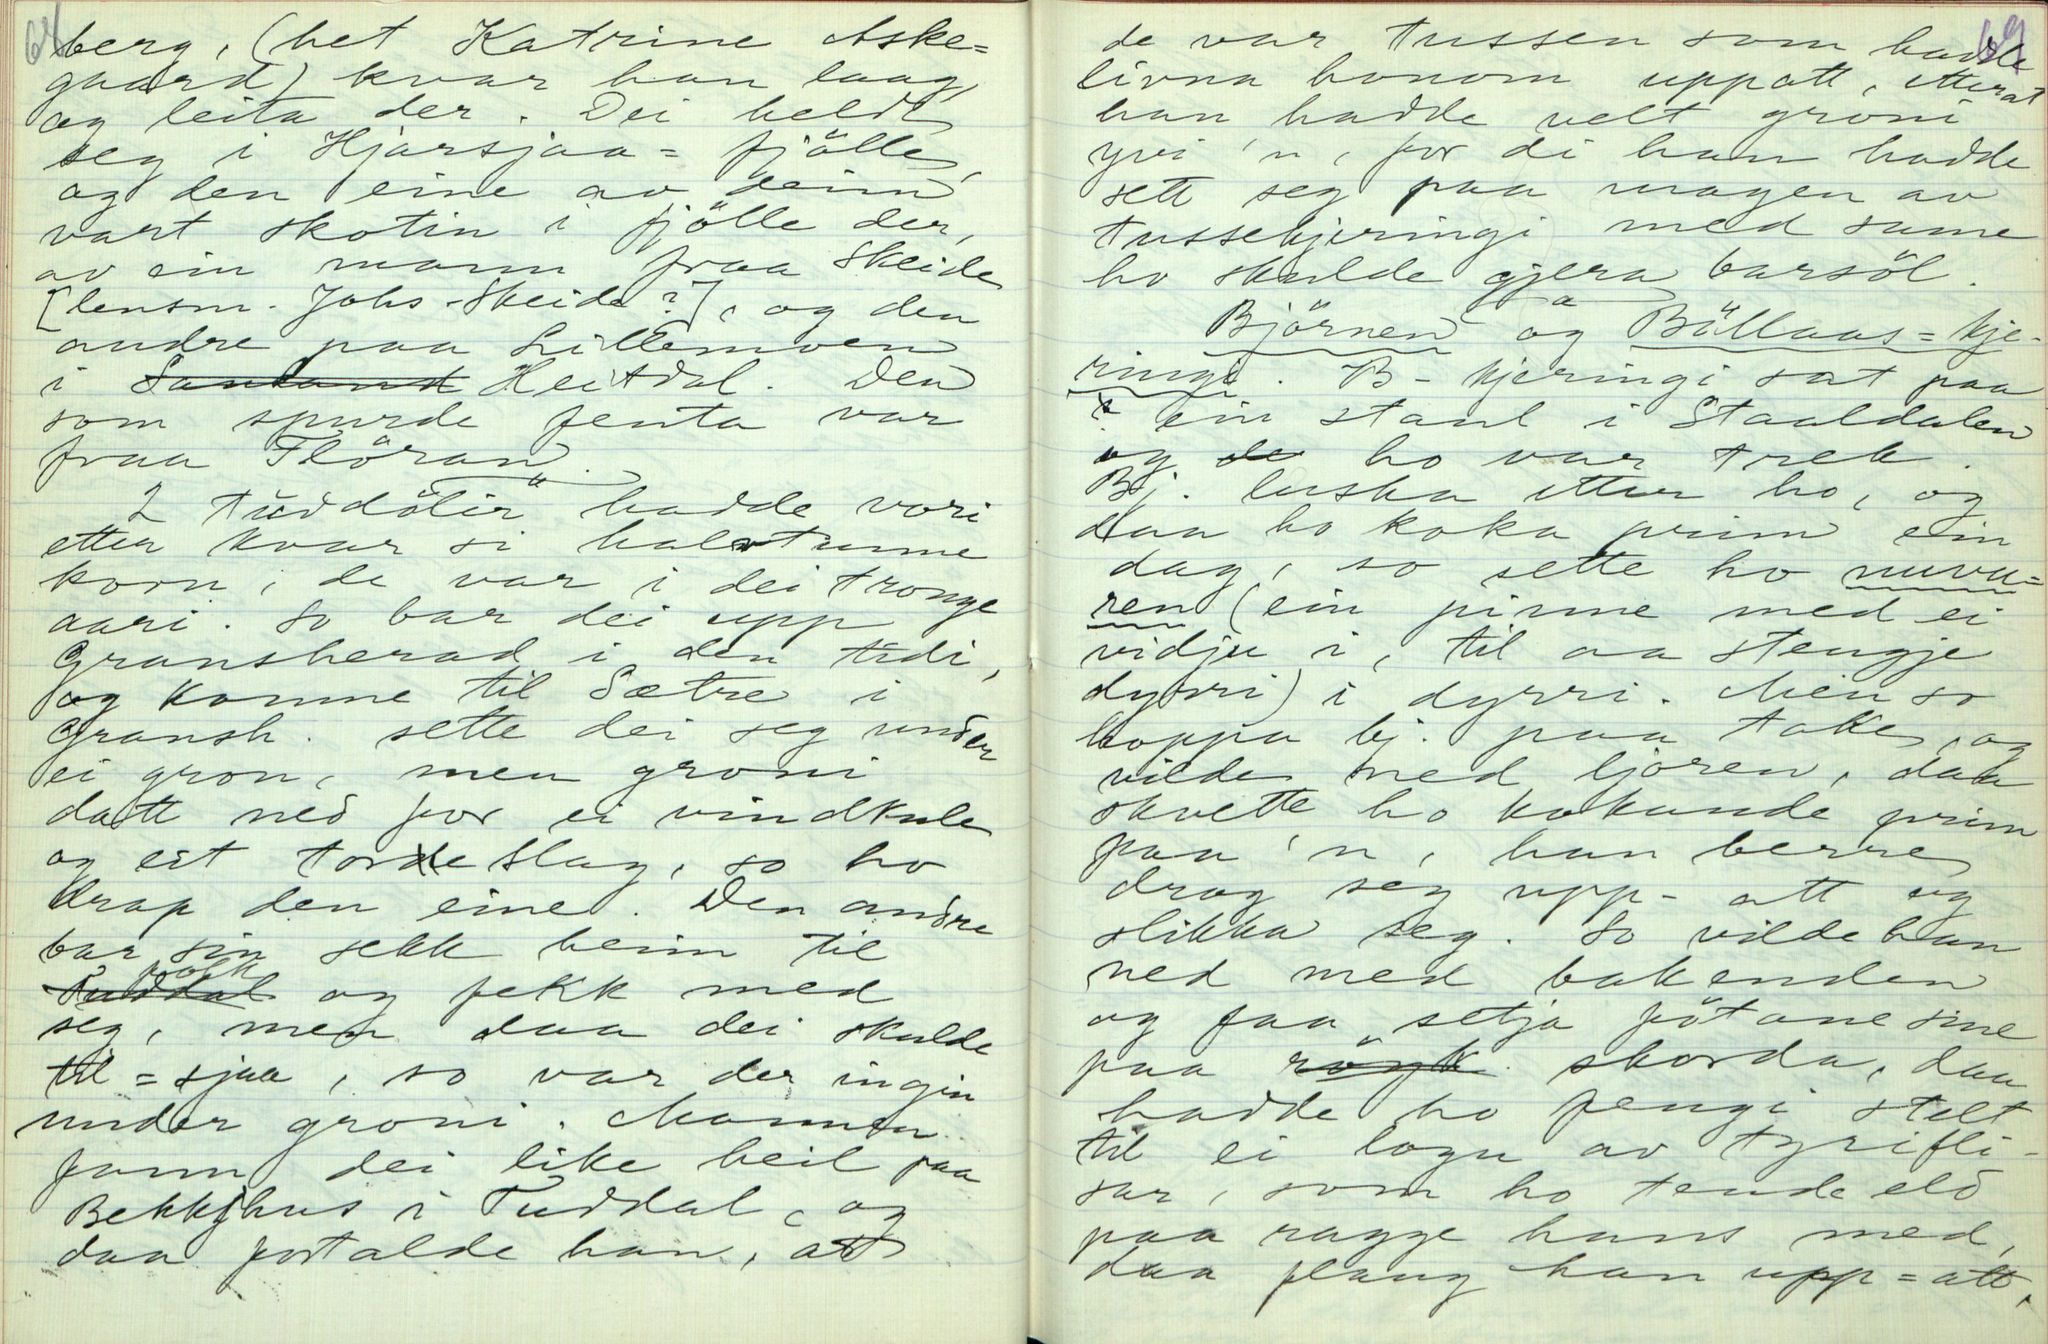 68
berg, (het Katrine Aske=
gaard) kvar han laag,
og leita der. Dei heldt
seg i Hjarsjaa=fjölle,
og den eine av deim
vart skotin i fjölle der,
av ein mann fraa Skeide
[lensm. Johs. Skeide?], og den
andre paa Lillemoen
i Sauland Heitdal. Den
som spurde jenta var
fraa Flöran.
2 tuddölir hadde vori
etter kvar si halvtunne
korn, de var i dei tronge
aari. So bar dei upp
Gransherad i den tidi,
og komme til Sætre i
Gransh. sette dei seg under
ei gron, men groni
datt ned for ei vindkule
og eit tordeslag, so ho
drap den eine. Den andre
bar sin sekk heim til
Tuddal folk og fekk med
seg, men daa dei skulde
til=sjaa, so var der ingin
under groni. Mannen
fann dei like heil paa
Bekkjhus i Tuddal, og
daa fortalde han, at
69
de var tussen som hadde
livna honom uppatt, etterat
han hadde velt groni
yvi 'n, for di han hadde
sett seg paa magen av
tussekjeringi med same
ho skulde gjera barsöl.
Björnen og Böllaas=kje-
ringi. B-kjeringi sat paa
ein staul i Staaldalen
og de ho var trek.
Bj. luska etter ho, og
daa ho koka prim ein
dag, so sette ho nuvu=
ren (ein pinne med ei
vidju i, til aa stengje
dyrri) i dyrri. Men so
hoppa bj. paa take, og
vilde ned ljoren, daa
skvette ho kokande prim
paa 'n, han berre
drog seg upp-att og
slikka seg. So vilde han
ned med bakenden
og faa setja fötane sine
paa skorda, daa
hadde ho fengi stelt
til ei logu av tyrifli-
sar, som ho tende eld
paa ragge hans med,
daa flaug han upp=att,